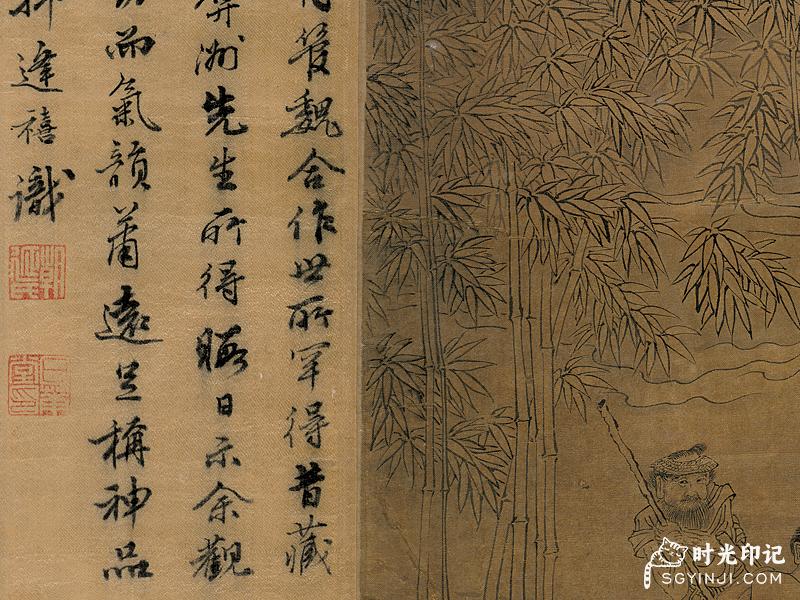 管魏合作世所罕得昔藏
洲先生所得暇日示余觀
而氣韻蕭遠足稱神品
達禧識
时光印记
SGYINJI.COM